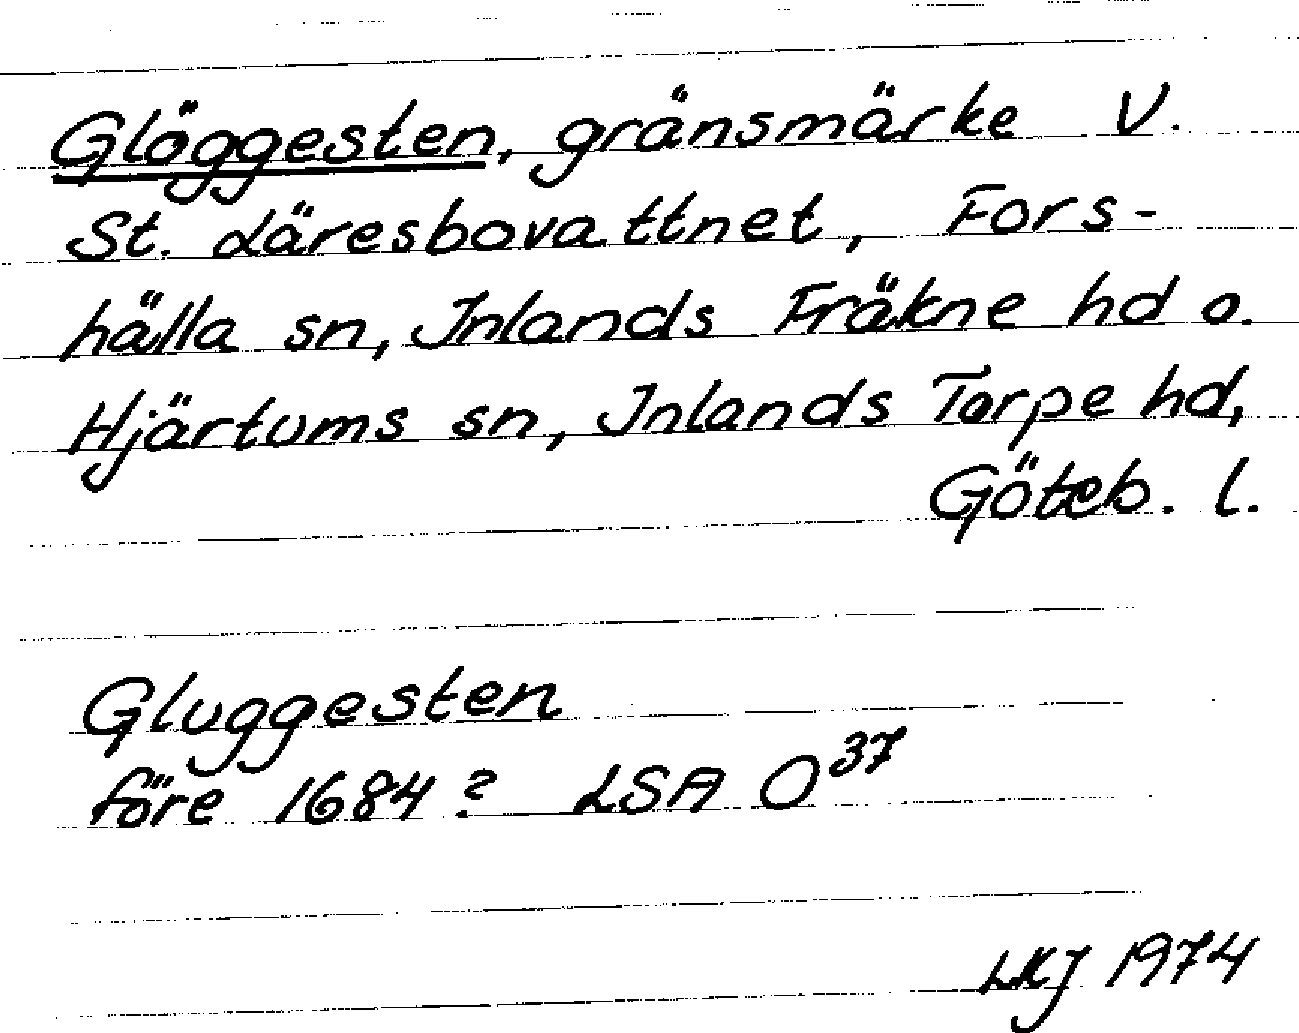 Glöggesten, gränsmärke V.
St. Läresbovattnet, Fors-
hälla sn, Inlands Fräkne hd o.
Hjärtums sn, Inlands Torpe hd,
Göteb. l.
Gluggesten
före 1684? LSA O³⁷
LKJ 1974